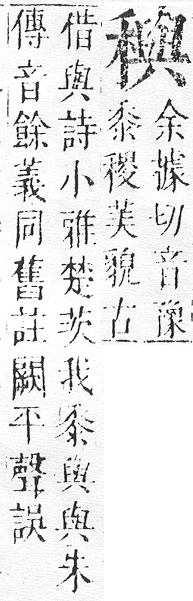 穥
余據切音豫
黍稷美貌古
借與詩小雅楚茨我黍與與朱
傳音餘義同舊註闕平聲誤